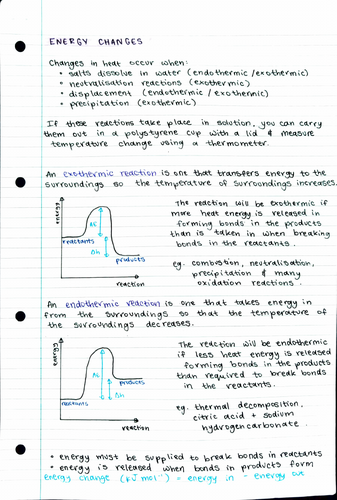 ENERGY CHANGES
Changes in heat occur when:
• salts dissolve in water (endothermic/exothermic)
• neutralisation reactions (exothermic)
• displacement (endothermic/exothermic)
• precipitation (exothermic)
If these reactions take place in solution, you can carry
them out in a polystyrene cup with a lid & measure
temperature change using a thermometer.
An exothermic reaction is one that transfers energy to the
surroundings so the temperature of surroundings increases.
energy
reactants
products
reaction
Δh
The reaction will be exothermic if
more heat energy is released in
forming bonds in the products
than is taken in when breaking
bonds in the reactants.
eg. combustion, neutralisation,
precipitation & many
oxidation reactions.
An endothermic reaction is one that takes energy in
from the surroundings so that the temperature of
the surroundings decreases.
energy
products
reactants
reaction
Δh
The reaction will be endothermic
if less heat energy is released
forming bonds in the products
than required to break bonds
in the reactants.
eg. thermal decomposition,
citric acid + sodium
hydrogencarbonate.
• energy must be supplied to break bonds in reactants
• energy is released when bonds in products form
energy change (kJ mol⁻¹) = energy in - energy out